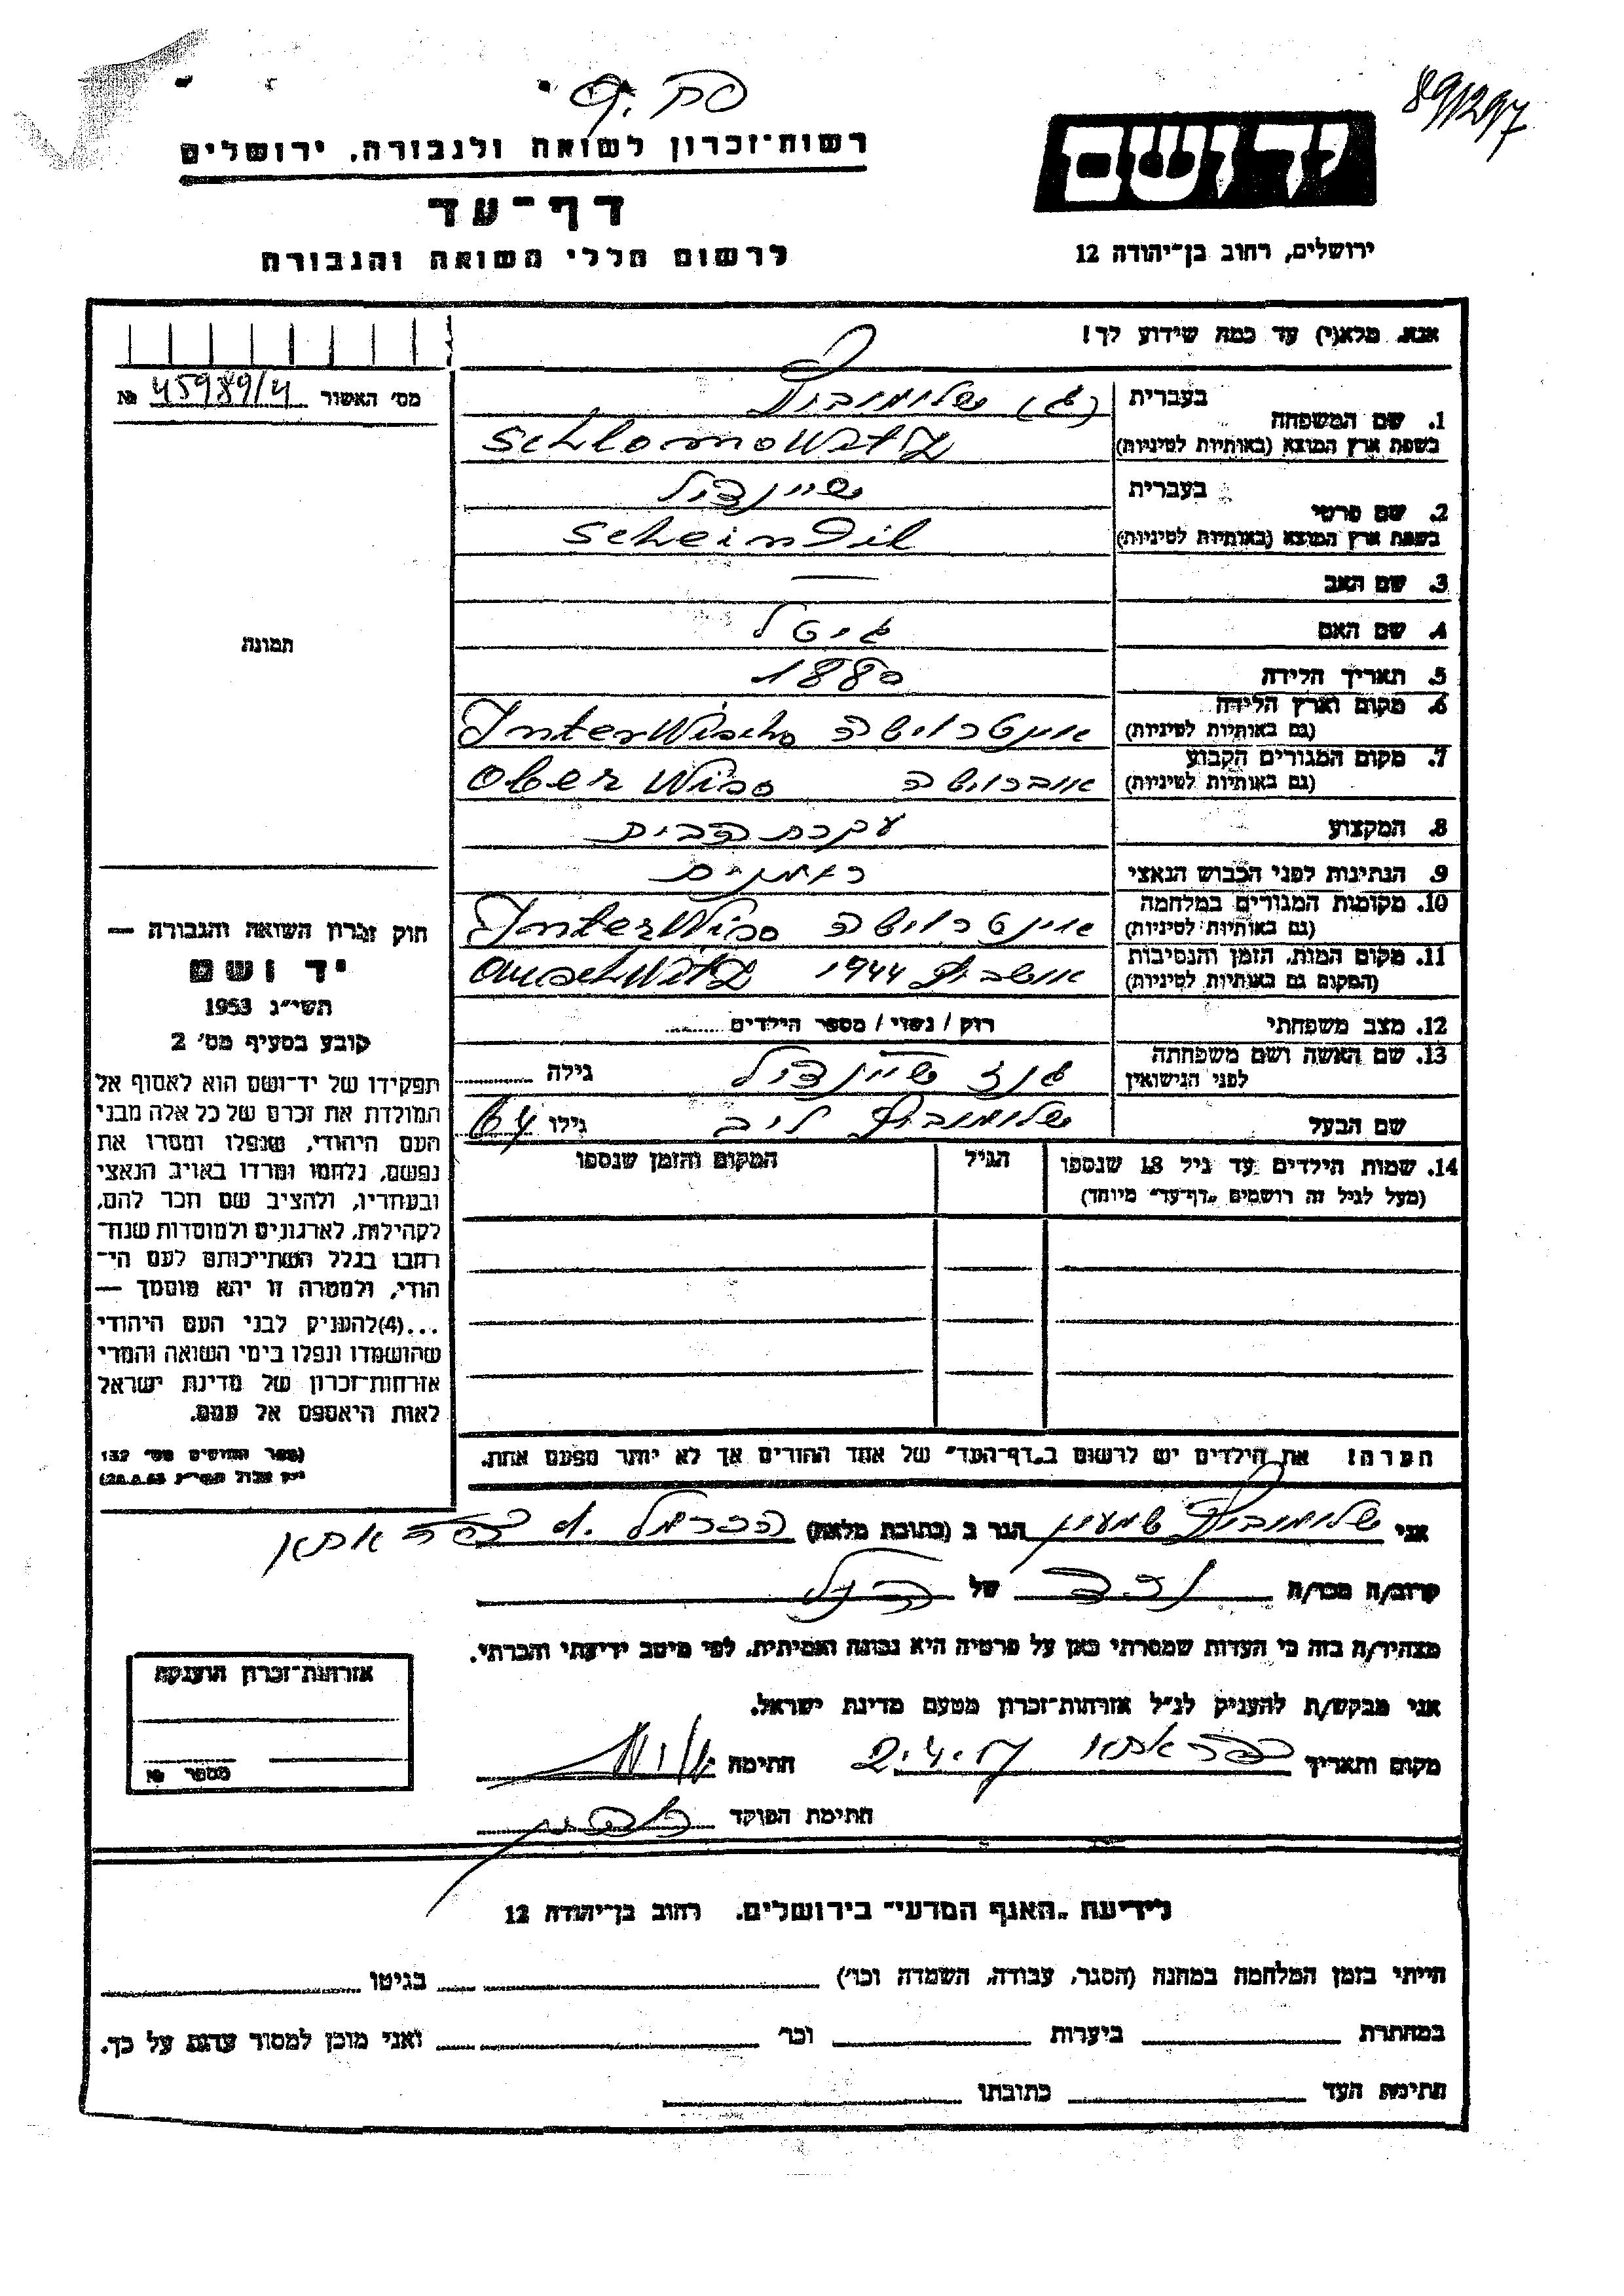 89/297
רשות־זכרון לשואה ולגבורה, ירושלים
דף־עד
לרשום חללי השואה והגבורה
יד ושם
ירושלים, רחוב בן־יהודה 12
אנא, מלא(י) עד כמה שידוע לך!
מס׳ האשור 45989/4 №
1. שם המשפחה
בעברית שלומוביץ
בשפת ארץ המוצא (באותיות לטיניות) Schlomowitz
2. שם פרטי
בעברית שיינדיל
בשפת ארץ המוצא (באותיות לטיניות) Scheindil
3. שם האב —
4. שם האם גיטל
5. תאריך הלידה 1880
6. מקום וארץ הלידה
(גם באותיות לטיניות) אינטרווישה InterWischo
7. מקום המגורים הקבוע
(גם באותיות לטיניות) אוברווישה Ober Wiso
8. המקצוע עקרת הבית
9. הנתינות לפני הכבוש הנאצי
10. מקומות המגורים במלחמה
(גם באותיות לטיניות) אינטרווישה InterWiso
11. מקום המות, הזמן והנסיבות
(המקום גם באותיות לטיניות) אושביץ 1944 Auschwitz
12. מצב משפחתי רוק / נשוי / מספר הילדים
13. שם האשה ושם משפחתה
לפני הנישואין גנז שיינדיל גילה
שם הבעל שלומוביץ ליב גילו 64
14. שמות הילדים עד גיל 18 שנספו
(מעל לגיל זה רושמים „דף־עד״ מיוחד)
הגיל
המקום והזמן שנספו
הערה! את הילדים יש לרשום ב„דף־העד״ של אחד ההורים אך לא יותר מפעם אחת.
תמונה
חוק זכרון השואה והגבורה —
יד ושם
תשי״ג 1953
קובע בסעיף מס׳ 2
תפקידו של יד־ושם הוא לאסוף אל
המולדת את זכרם של כל אלה מבני
העם היהודי, שנפלו ומסרו את
נפשם, נלחמו ומרדו באויב הנאצי
ובעוזריו, ולהציב שם וזכר להם,
לקהילות, לארגונים ולמוסדות שנח־
רבו בגלל השתייכותם לעם הי־
הודי, ולמטרה זו יהא מוסמך —
...(4)להעניק לבני העם היהודי
שהושמדו ונפלו בימי השואה והמרי
אזרחות־זכרון של מדינת ישראל
לאות היאספם אל עמם.
(ספר החוקים מס׳ 132
אני שלומוביץ שמעון הגר ב (כתובת מלאה) הכרמל כפר אתא
קרוב/ה מכר/ה נכד של הנ״ל
מצהיר/ה בזה כי העדות שמסרתי כאן על פרטיה היא נכונה ואמיתית, לפי מיטב ידיעתי והכרתי.
אני מבקש/ת להעניק לנ״ל אזרחות־זכרון מטעם מדינת ישראל.
מקום ותאריך כפר אתא 2.4.57 חתימה
חתימת הפוקד
אזרחות־זכרון הוענקה
מספר №
לידיעת „האגף המדעי״ בירושלים, רחוב בן־יהודה 12
הייתי בזמן המלחמה במחנה (הסגר, עבודה, השמדה וכו׳) בגיטו
במחתרת ביערות וכו׳ ואני מוכן למסור עדות על כך.
חתימת העד כתובתו